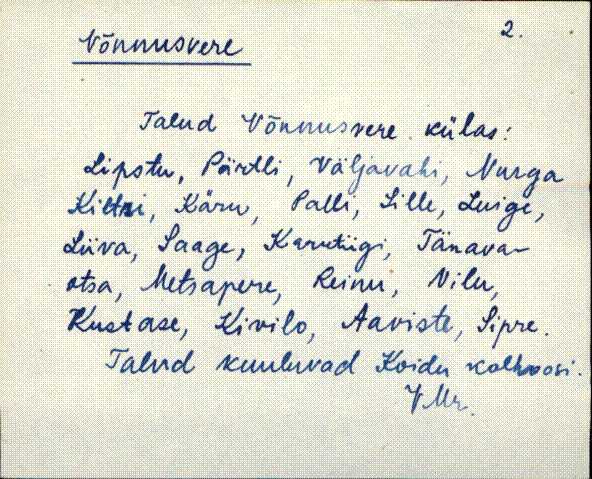 2.
Võnnusvere
Talud Võnnusvere külas:
Lipstu, Pärtli, Väljavahi, Nurga
Kiltri, Käru, Palli, Lille, Luige,
Liiva, Saage, Karutiigi, Tänava-
otsa, Metsapere, Reinu, Nilu,
Kustase, Kivilo, Aaviste, Sipre.
Talud kuuluvad Koidu kolhoosi.
V Mr.